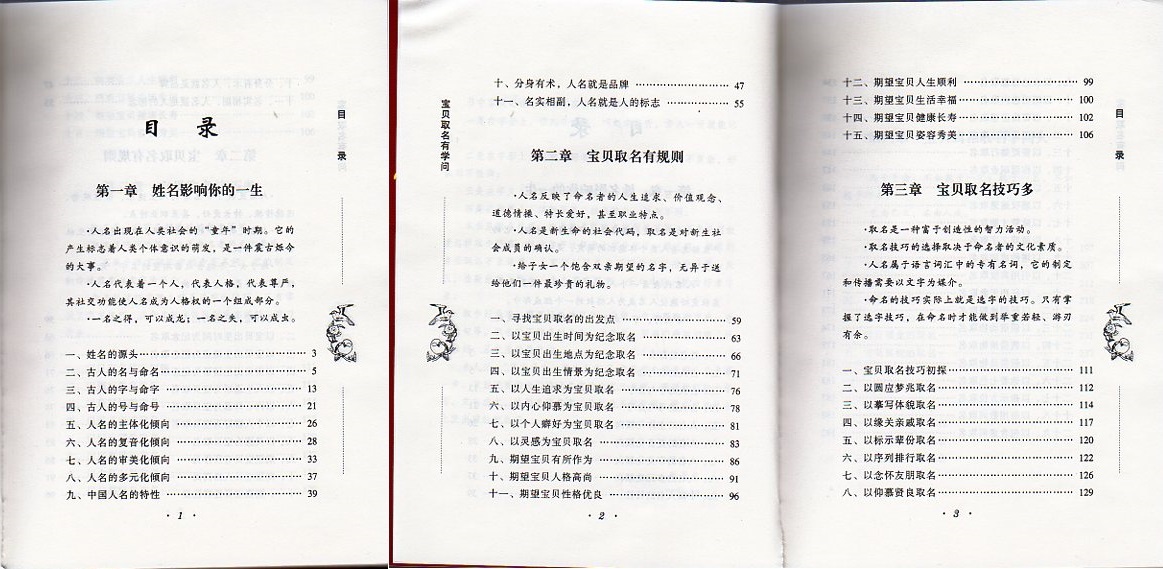 目录
目录
第一章 姓名影响你的一生
·人名出现在人类社会的“童年”时期。它的
产生标志着人类个体意识的萌发，是一件震古烁今
的大事。
·人名代表着一个人，代表人格，代表尊严，
其社交功能使人名成为人格权的一个组成部分。
·一名之得，可以成龙；一名之失，可以成虫。
一、姓名的源头 3
二、古人的名与命名 5
三、古人的字与命字 13
四、古人的号与命号 21
五、人名的主体化倾向 26
六、人名的复音化倾向 28
七、人名的审美化倾向 33
八、人名的多元化倾向 37
九、中国人名的特性 39
·1·
宝贝取名有学问
十、分身有术，人名就是品牌 47
十一、名实相副，人名就是人的标志 55
第二章 宝贝取名有规则
·人名反映了命名者的人生追求、价值观念、
道德情操、特长爱好，甚至职业特点。
·人名是新生命的社会代码，取名是对新生社
会成员的确认。
·给子女一个饱含双亲期望的名字，无异于送
给他们一件最珍贵的礼物。
一、寻找宝贝取名的出发点 59
二、以宝贝出生时间为纪念取名 63
三、以宝贝出生地点为纪念取名 66
四、以宝贝出生情景为纪念取名 71
五、以人生追求为宝贝取名 76
六、以内心仰慕为宝贝取名 78
七、以个人癖好为宝贝取名 81
八、以灵感为宝贝取名 83
九、期望宝贝有所作为 86
十、期望宝贝人格高尚 91
十一、期望宝贝性格优良 96
·2·
目录
十二、期望宝贝人生顺利 99
十三、期望宝贝生活幸福 100
十四、期望宝贝健康长寿 102
十五、期望宝贝姿容秀美 106
第三章 宝贝取名技巧多
·取名是一种富于创造性的智力活动。
·取名技巧的选择取决于命名者的文化素质。
·人名属于语言词汇中的专有名词，它的制定
和传播需要以文字为媒介。
·命名的技巧实际上就是选字的技巧。只有掌
握了选字技巧，在命名时才能做到举重若轻、游刃
有余。
一、宝贝取名技巧初探 111
二、以圆应梦兆取名 112
三、以摹写体貌取名 114
四、以缘关亲戚取名 117
五、以标示辈份取名 120
六、以序列排行取名 122
七、以念怀友朋取名 126
八、以仰慕贤良取名 129
·3·